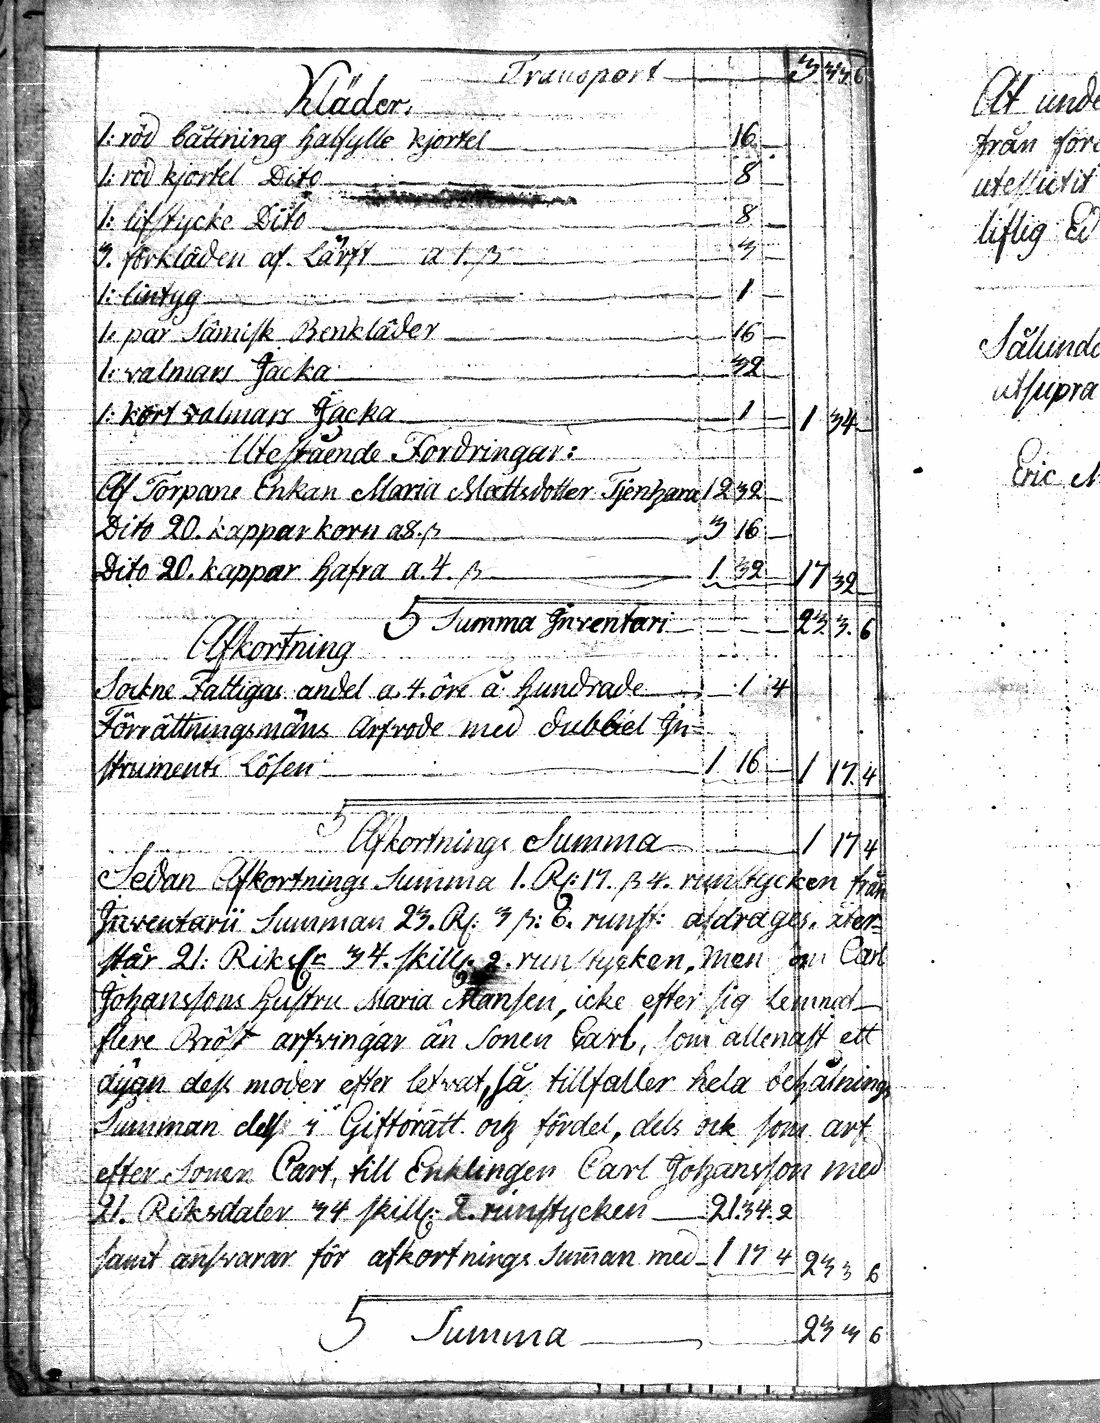 Transport 3 33 6
Kläder.
1: röd bâttning halfylle kjortel 16
1: röd kjortel Dito 8
1: lifstycke Dito 8
3. förkläden af Lärft a 1. ß 3
1: lintyg 1
1. par Sämisk Benkläder 16
1: valmars Jacka 32
1: kort valmars Jacka 1 1 34
Utestående Fordringar:
Af Torpare Enkan Maria Mattsdotter Tjenhara 12 32
Dito 20. kappar korn a 8. ß 3 16
Dito 20. kappar hafra a. 4. ß 1 32 17 32
Summa Inventari 23. 3. 6
Afkortning
Sockne Fattigas andel a. 4. öre å hundrade 1 4
Förrättningsmäns Arfvode med dubbel In-
struments Lösen 1 16 1 17. 4
Afkortnings Summa 1 17 4
Sedan Afkortnings Summa 1. R: 17. ß 4. runstycken från
Inventarii Summan 23. R: 3 ß: 6. runst: afdrages, åter-
står 21: Riksdr 34. skill: 2. runstycken, Men som Carl
Johanssons hustru Maria Mansen, icke efter sig lemnad
flere Bröst arfvingar än Sonen Carl, som allenast ett
dygn dess moder efter lefvat, så tillfaller hela behålnings
Summan dels i Giftorätt och fördel, dels ock som arf
efter Sonen Carl, till Enklingen Carl Johansson med
21. Riksdaler 34 skill: 2. runstycken 21. 34. 2
samt ansvarar för afkortnings Summan med 1 17 4 23 3 6
Summa 23 3 6
At unde
från före
uteslutit
liflig Ed
Sålunda
utsupra
Eric M